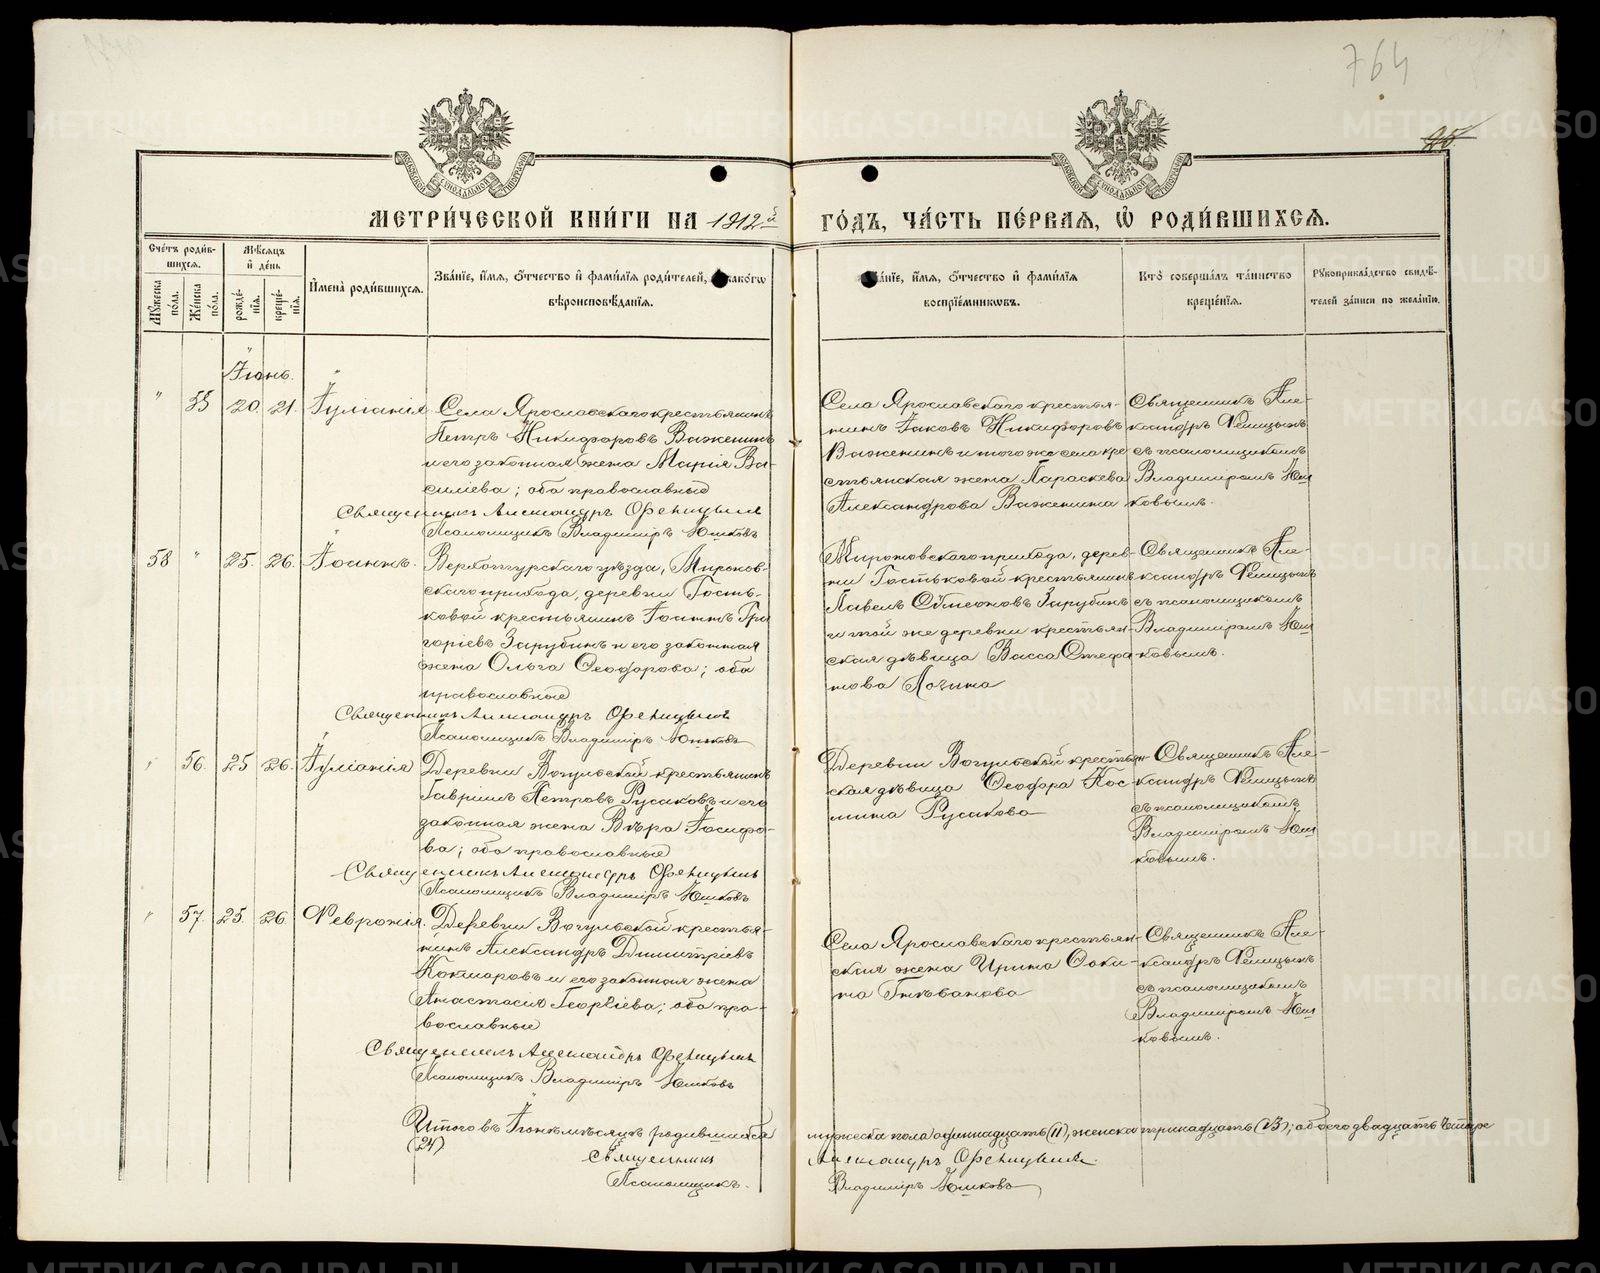 764
25.
МОСКОВСКОЙ СѴНОДАЛЬНОЙ ТИПОГРАФІИ
МОСКОВСКОЙ СѴНОДАЛЬНОЙ ТИПОГРАФІИ
МЕТРИ́ЧЕСКОЙ КНИ́ГИ НА 1912й ГО́ДЪ, ЧА́СТЬ ПЕ́РВАѦ, Ѡ҆ РОДИ́ВШИХСѦ.
Сче́тъ роди́в-
шихсѧ.
Мѣ́сѧцъ
и҆ де́нь
Мꙋ́жеска по́ла.
Же́нска по́ла.
рожде́-
нїѧ.
креще́-
нїѧ.
И҆мена̀ роди́вшихсѧ.
Зва́нїе, и҆́мѧ, ѻ҆́тчество и҆ фами́лїѧ роди́телей, како́гѡ
вѣроисповѣ́данїѧ.
Зва́нїе, и҆́мѧ, ѻ҆́тчество и҆ фами́лїѧ
воспрїе́мникѡвъ.
Кто̀ соверша́лъ та́инство
креще́нїѧ.
Рꙋкоприкла́дство свидѣ́-
телей за́писи по жела́нїю.
Іюнь.
" 55 20. 21. Іуліанія
Села Ярославскаго крестьянинъ
Петръ Никифоровъ Важенинъ
и его законная жена Марія Ва-
силіева; оба православные
Священникъ Александръ Фелицынъ
Псаломщикъ Владиміръ Юшковъ
Села Ярославскаго крестья-
нинъ Іаковъ Никифоровъ
Важенинъ и того же села кре
стьянская жена Параскева
Александрова Важенина
Священникъ Але-
ксандръ Фелицынъ
съ псаломщикомъ
Владиміромъ Юш
ковымъ.
58 " 25. 26. Іоаннъ.
Верхотурскаго уѣзда, Миронов-
скаго прихода, деревни Гость-
ковой крестьянинъ Іоаннъ Гри
горіевъ Зарубинъ и его законная
жена Ольга Ѳеодорова; оба
православные
Священникъ Александръ Фелицынъ
Псаломщикъ Владиміръ Юшковъ
Мироновскаго прихода, дерев-
ни Гостьковой крестьянинъ
Павелъ Зарубинъ
и той же деревни крестьян-
ская дѣвица Васса Стефа
нова
Священникъ Але-
ксандръ Фелицынъ
съ псаломщикомъ
Владиміромъ Юш
ковымъ.
" 56. 25 26. Іуліанія
Деревни Вогульской крестьянинъ
Гавріилъ Петровъ Русаковъ и его
законная жена Вѣра Іосифо-
ва; оба православные
Священникъ Александръ Фелицынъ
Псаломщикъ Владиміръ Юшковъ
Деревни Вогульской крестьян-
ская дѣвица Ѳеодора Кос-
мина Русакова
Священникъ Але-
ксандръ Фелицынъ
съ псаломщикомъ
Владиміромъ Юш
ковымъ.
" 57. 25. 26. Февронія.
Деревни Вогульской крестья-
нинъ Александръ Димитріевъ
Комаровъ и его законная жена
Анастасія Георгіева; оба пра-
вославные
Священникъ Александръ Фелицынъ
Псаломщикъ Владиміръ Юшковъ
Села Ярославскаго крестьян-
ская жена Ирина Ѳоки-
на Гнѣванова
Священникъ Але-
ксандръ Фелицынъ
съ псаломщикомъ
Владиміромъ Юш
ковымъ.
Итого въ Іюнѣ мѣсяцѣ родившихся мужеска пола одиннадцать (11), женска тринадцать (13); обоего двадцать четыре
(24)
Священникъ Александръ Фелицынъ.
Псаломщикъ. Владиміръ Юшковъ
METRIKI.GASO-URAL.RU